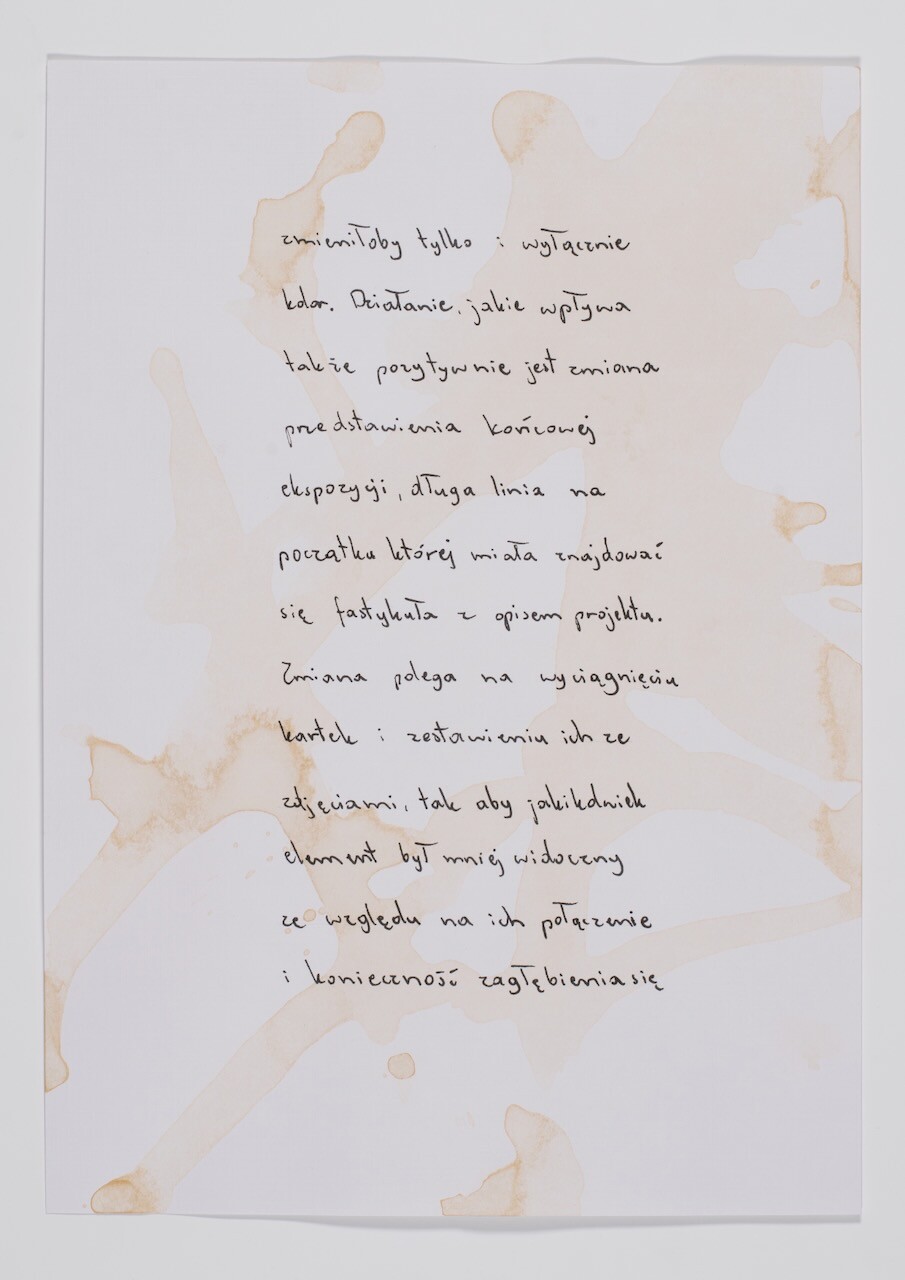 zmieniłoby tylko i wyłącznie
kolor. Działanie, jakie wpływa
także pozytywnie jest zmiana
przedstawienia końcowej
ekspozycji, długa linia na
początku której miała znajdować
się fastykuła z opisem projektu.
Zmiana polega na wyciągnięciu
kartek i zestawieniu ich ze
zdjęciami, tak aby jakikolwiek
element był mniej widoczny
ze względu na ich połączenie
i konieczność zagłębienia się